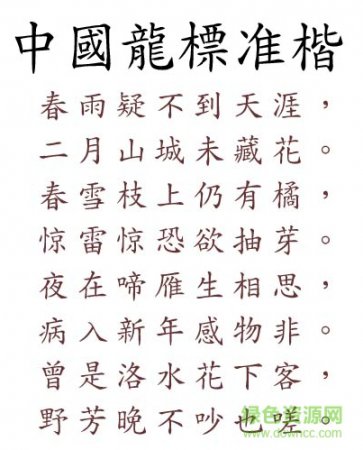 中國龍標准楷
春雨疑不到天涯，
二月山城未藏花。
春雪枝上仍有橘，
惊雷惊恐欲抽芽。
夜在啼雁生相思，
病入新年感物非。
曾是洛水花下客，
野芳晚不吵也嗟。
绿色资源网
www.downcc.com